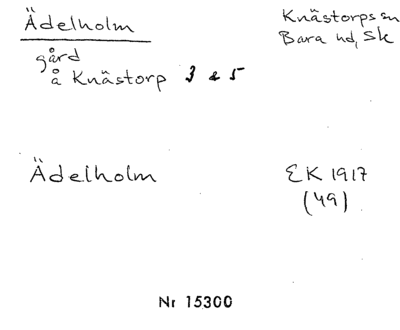 Ädelholm
Knästorps sn
Bara hd, Sk
gård
å Knästorp 3 & 5
Ädelholm
EK 1917
(49)
Nr 15300